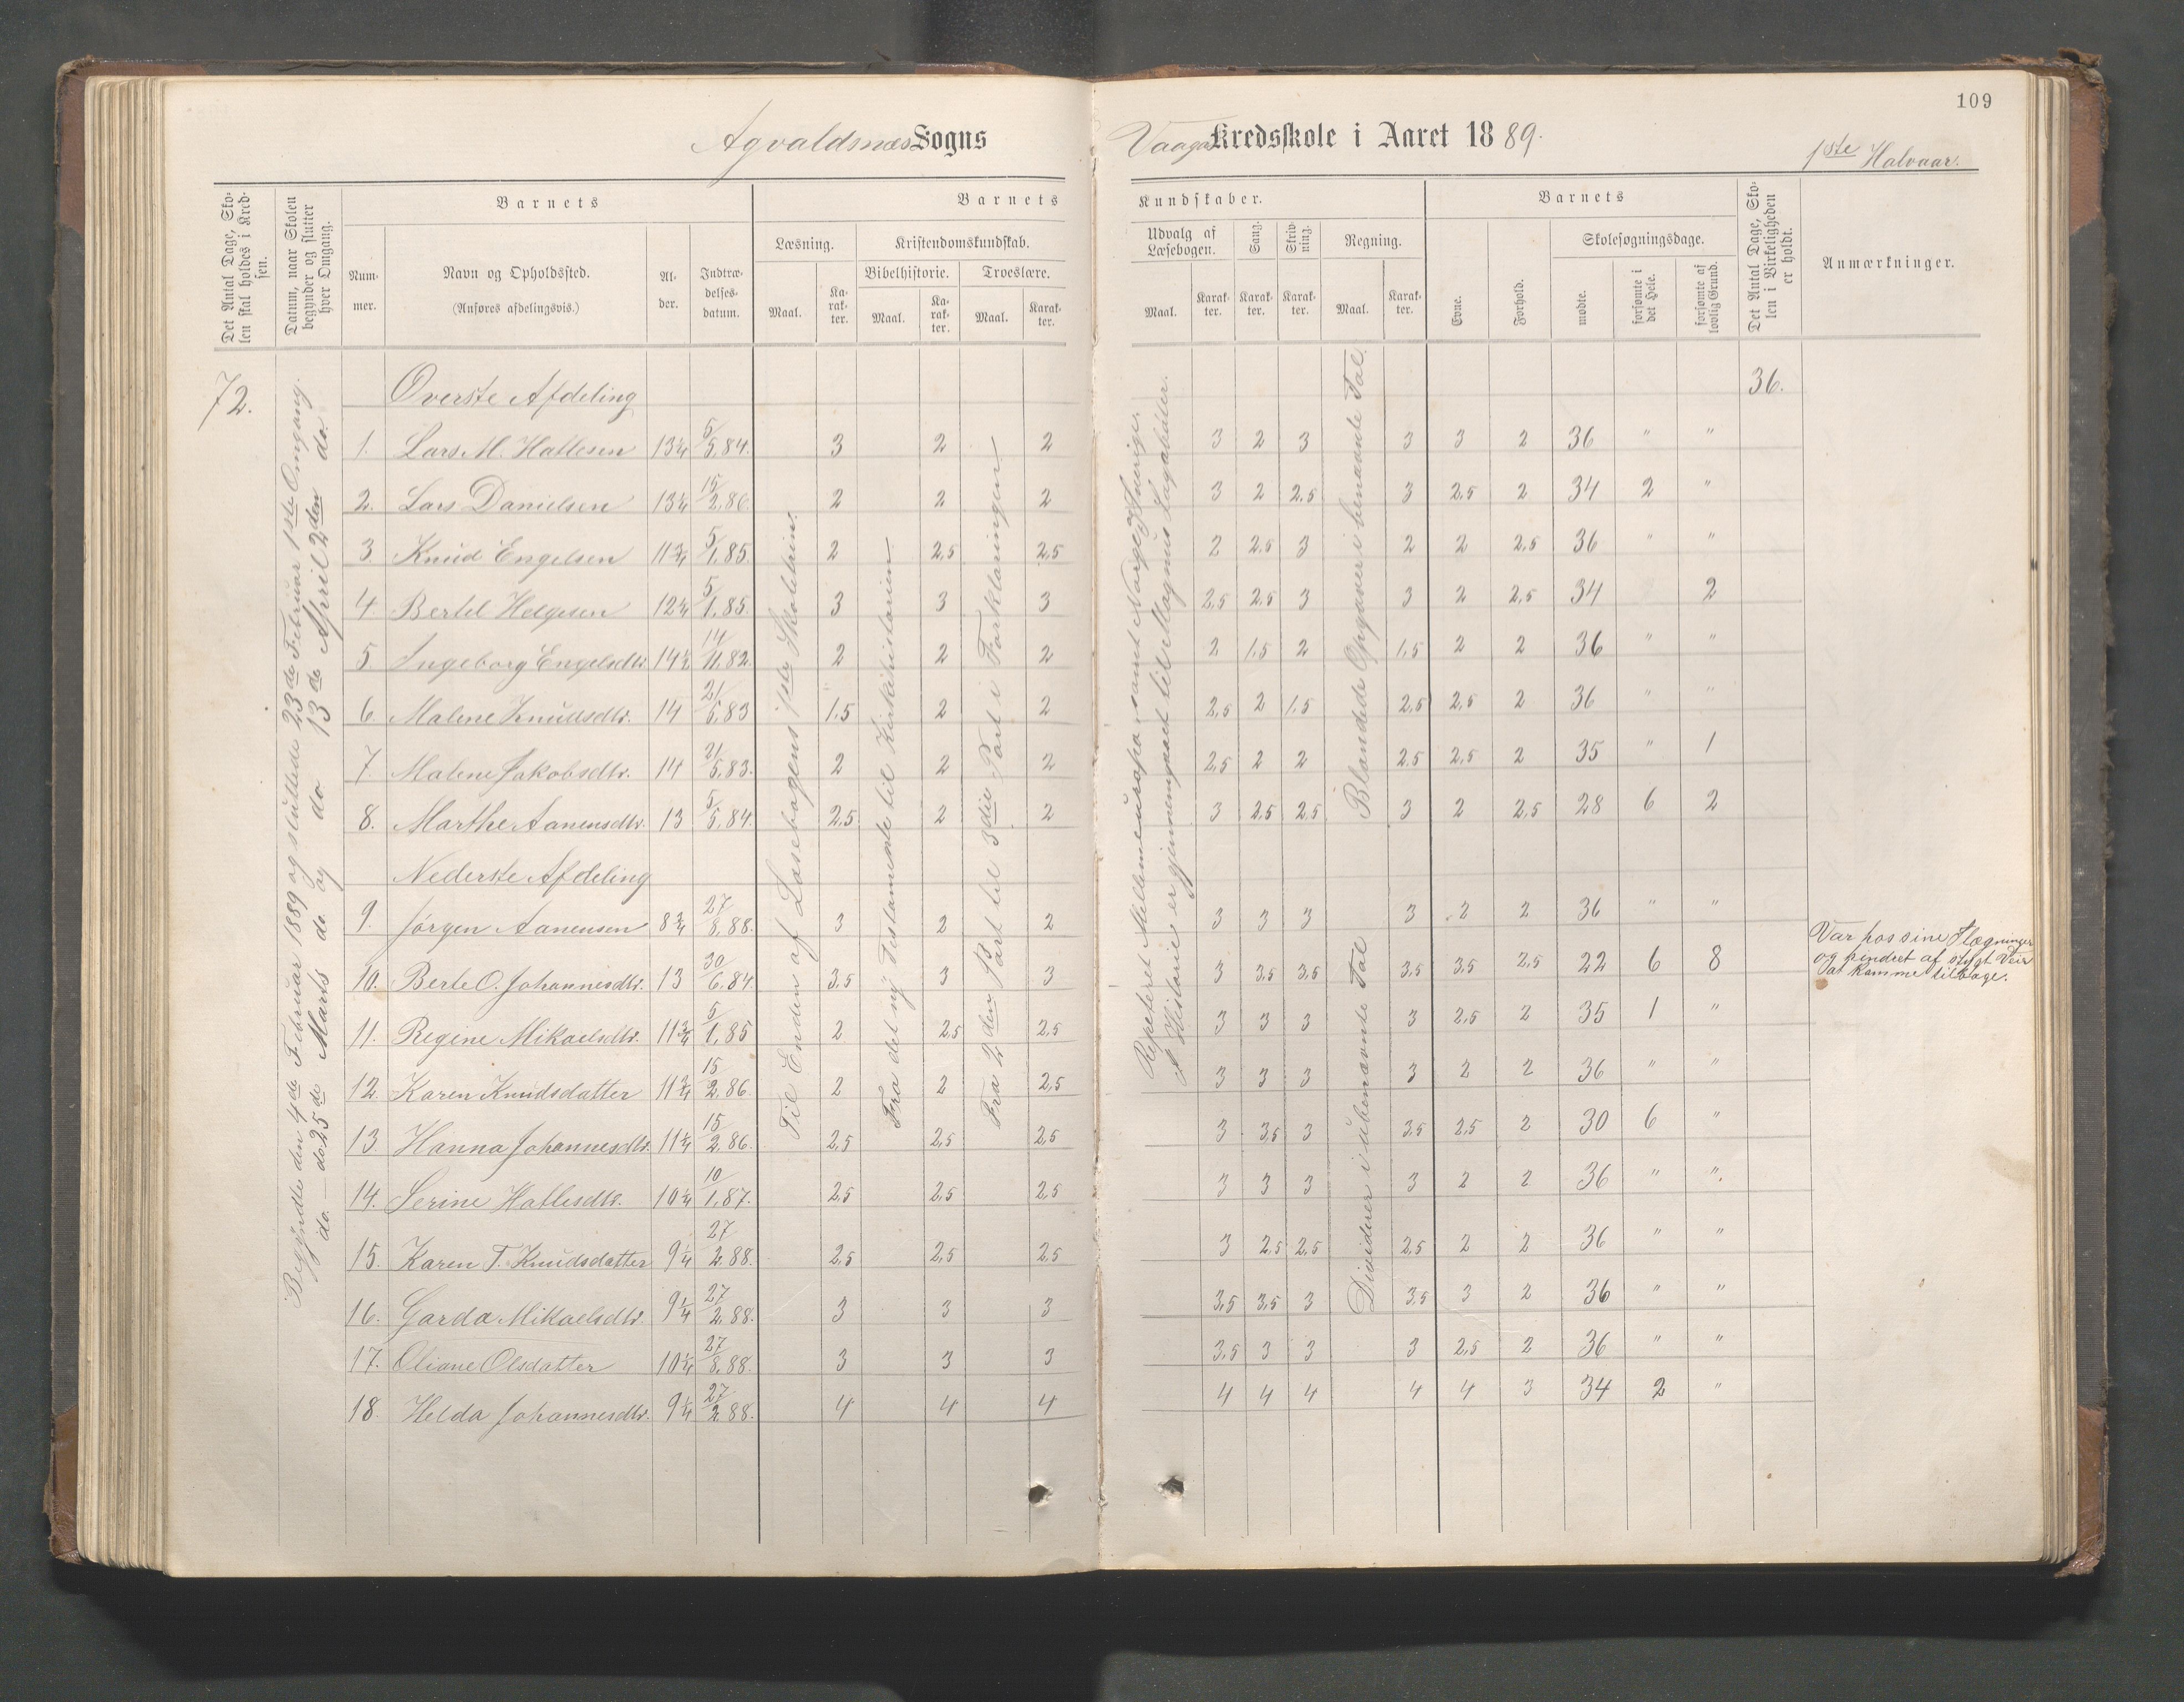 109
Agvaldsnæs Sogns
Vaaga Kredsskole i Aaret 1889.
1ste Halvaar.
Det Antal Dage, Sko-
len skal holdes i Kred-
sen.
Datum, naar Skolen
begynder og slutter
hver Omgang.
Barnets
Num-
mer.
Navn og Opholdssted.
(Anføres afdelingsvis.)
Al-
der.
Indtræ-
delses-
datum.
Barnets
Læsning.
Maal.
Ka-
rak-
ter.
Kristendomskundskab.
Bibelhistorie.
Maal.
Ka-
rak-
ter.
Troeslære.
Maal.
Karak-
ter.
Kundskaber.
Udvalg af
Læsebogen.
Maal.
Karak-
ter.
Sang.
Karak-
ter.
Skriv-
ning.
Karak-
ter.
Regning.
Maal.
Karak-
ter.
Barnets
Evne.
Forhold.
Skolesøgningsdage.
mødte.
forsømte i
det Hele.
forsømte af
lovlig Grund.
Det Antal Dage, Sko-
len i Virkeligheden
er holdt.
Anmærkninger.
72.
Begyndte den 4de Februar 1889 og sluttede 23de Februar 1ste Omgang.
do. — do 25de Marts do. og do 13de April 2den do.
Til Enden af Læsebogens 1ste Skoletrin.
Fra det ny Testamente til Kirkehistorien
Fra 2den Part til 3die Part i Forklaringen
Repeteret Mellemeuropa samt Norge og Sverige.
I Historie er gjennemgaaet til Magnus Lagabøter.
Blandede Opgaver i benævnte Tal.
Dividerer i ubenævnte Tal
36.
Øverste Afdeling
1. Lars M. Hallesen 13 1/4 5/5,84. 3 2 2 3 2 3 3 3 2 36 " "
2. Lars Danielsen 13 1/4 15/2,86. 2 2 2 3 2 2,5 3 2,5 2 34 2 "
3. Knud Engelsen 11 3/4 5/1,85. 2 2,5 2,5 2 2,5 3 2 2 2,5 36 " "
4. Bertel Helgesen 12 1/4 5/1,85. 3 3 3 2,5 2,5 3 3 2 2,5 34 2
5. Ingeborg Engelsdtr. 14 1/2 14/11,82. 2 2 2 2 1,5 2 1,5 2 2 36 " "
6. Malene Knudsdtr. 14 21/5,83 1,5 2 2 2,5 2 1,5 2,5 2,5 2 36 " "
7. Malene Jakobsdtr. 14 21/5,83. 2 2 2 2,5 2 2 2,5 2,5 2 35 " 1
8. Marthe Aanensdtr. 13 5/5,84. 2,5 2 2 3 2,5 2,5 3 2 2,5 28 6 2
Nederste Afdeling
9. Jørgen Aanensen 8 3/4 27/8,88. 3 2 2 3 3 3 3 2 2 36 " "
10. Berte O. Johannesdtr. 13 30/6,84. 3,5 3 3 3 3,5 3,5 3,5 3,5 2,5 22 6 8
Var hos sine Slægninger
og hindret af stygt Veir
at komme tilbage.
11. Regine Mikaelsdtr. 11 3/4 5/1,85 2 2,5 2,5 3 3 3 3 2,5 2 35 1 "
12. Karen Knudsdatter 11 3/4 15/2,86 2 2 2,5 3 3 3 3 2 2 36 " "
13. Hanna Johannesdtr. 11 1/4 15/2,86. 2,5 2,5 2,5 3 3,5 3 3,5 2,5 2 30 6 "
14. Serine Hallesdtr. 10 1/4 10/1,87. 2,5 2,5 2,5 3 3 3 3 2 2 36 " "
15. Karen T. Knudsdatter 9 1/4 27/2,88. 2,5 2,5 2,5 3 2,5 2,5 2,5 2 2 36 " "
16. Garda Mikaelsdtr. 9 1/4 27/2,88. 3 3 3 3,5 3,5 3 3,5 3 2 36 " "
17. Oliane Olsdatter 10 1/4 27/8,88. 3 3 3 3,5 3 3 3 2,5 2 36 " "
18. Helda Johannesdtr. 9 1/4 27/2,88. 4 4 4 4 4 4 4 4 3 34 2 "